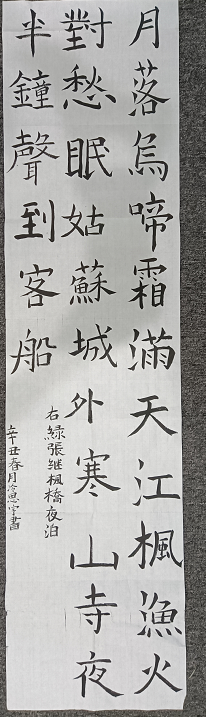 月落烏啼霜滿天江楓漁火
對愁眠姑蘇城外寒山寺夜
半鐘聲到客船
右綠張繼楓橋夜泊
辛丑春月